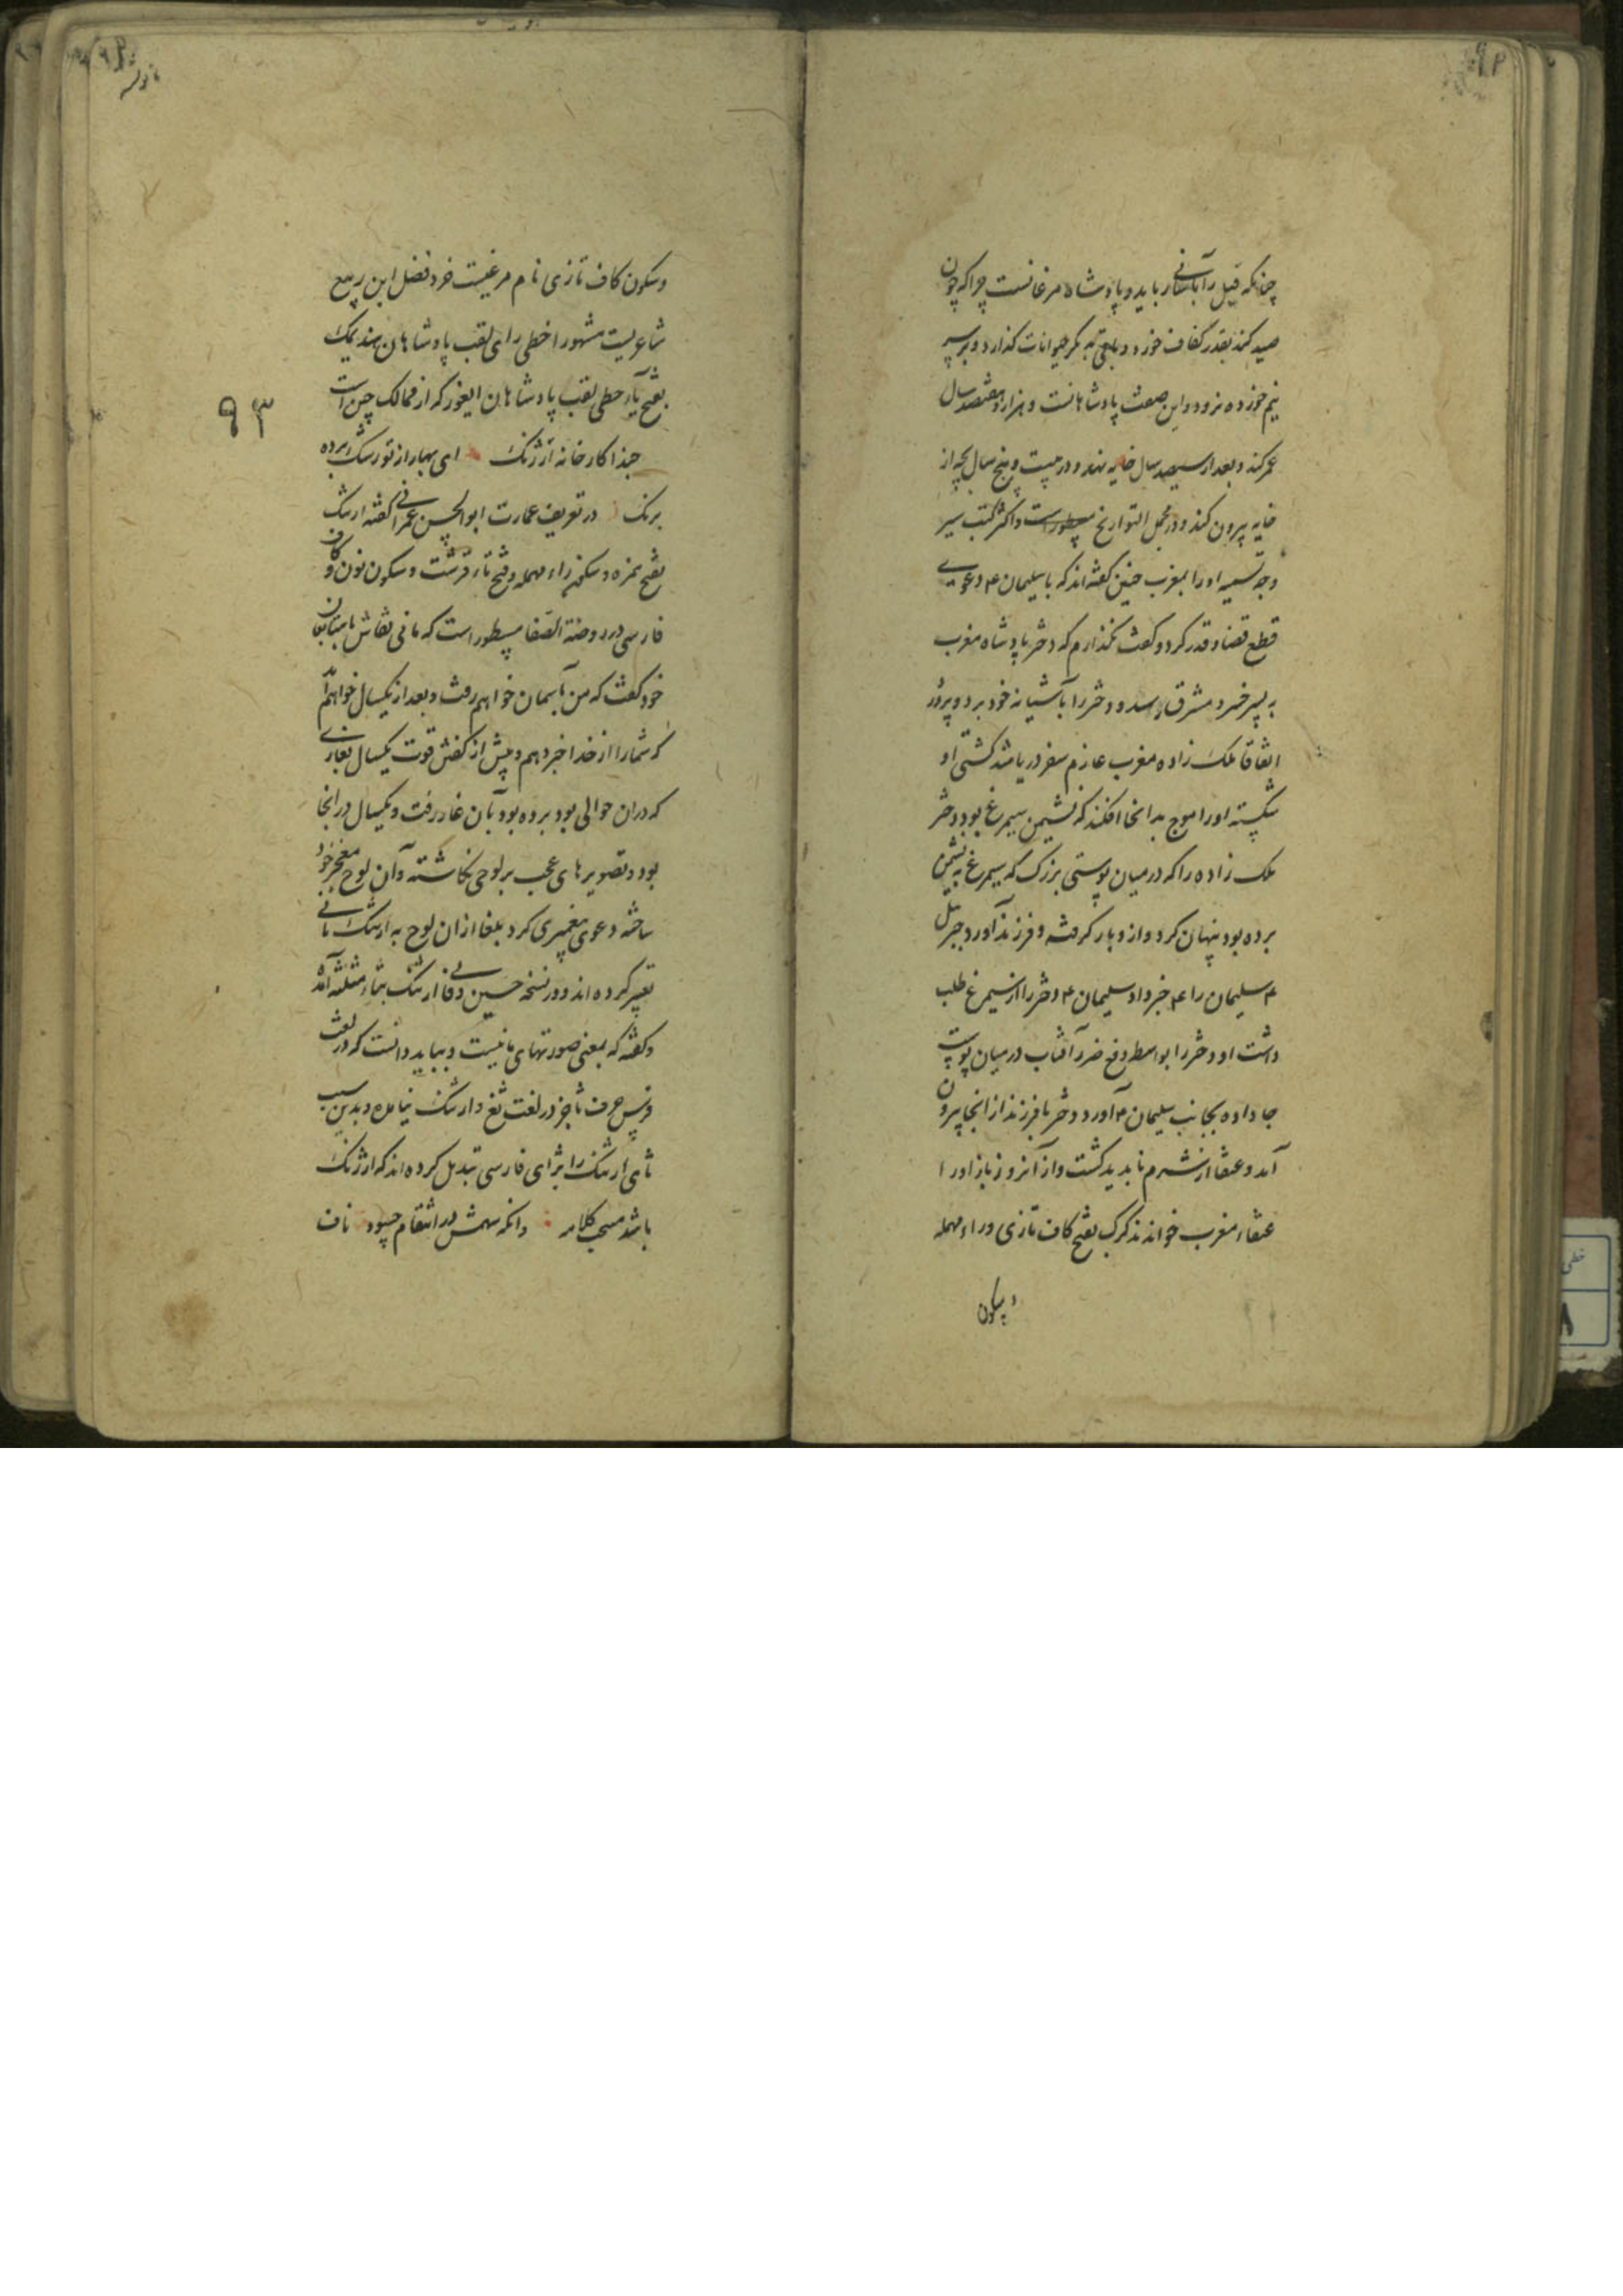 چنانکه فیل را بآسانی رباید و پادشاه مرغانست چرا که چون
صید کند بقدر کفاف خورد و باقی به دیگر حیوانات گذارد و بر سر
نیم خورده نرود و این صفت پادشاهانست و هزار و هفتصد سال
عمر کند و بعد از سیصد سال خایه نهد و در بیست و پنج سال بچه از
خایه بیرون کند و در مجمل التواریخ مسطورست و اکثر کتب سیر
وجه تسمیه او را بمغرب چنین گفته اند که با سلیمان ۴ دعوی
قطع قضا و قدر کرد و گفت نگذارم که دختر پادشاه مغرب
به پسر خسرو مشرق رسد و دختر را بآشیانه خود برد و پرورد
اتفاقا ملک زاده مغرب عازم سفر دریا شد کشتی او
شکسته او را موج بدانجا افکند که نشیمن سیمرغ بود و دختر
ملک زاده را که در میان پوستی بزرگ که سیمرغ به نشیمن
برده بود پنهان کرد و از و بار گرفته و فرزند آورد جبرئیل
۴ سلیمان را ۴ خبر داد سلیمان ۴ دختر را از سیمرغ طلب
داشت او دختر را بواسطه دفع ضرر آفتاب در میان پوست
جا داده بجانب سلیمان ۴ آورد دختر با فرزند از انجا بیرون
آمد و عنقا از شرم ناپدید گشت و از آنروز باز او را
عنقاء مغرب خوانند کرک بفتح کاف تازی و راء مهمله
و سکون
۹۳
و سکون کاف تازی نام مرغیست خرد فضل ابن ربیع
شاعریست مشهور اخطی رای لقب پادشاهان هند یمک
بفتح یاء حطی لقب پادشاهان ایغور که از ممالک چین است
حبذا کارخانه ارژنگ ای بهار از تو رشک برده
برنگ در تعریف عمارت ابوالحسن عمرانی گفته ارتنگ
بفتح همزه و سکون راء مهمله و فتح تاء قرشت و سکون نون و کاف
فارسی در روضة الصفا مسطور است که مانی نقاش با متابعان
خود گفت که من بآسمان خواهم رفت و بعد از یکسال خواهم آمد
که شما را از خدا خبر دهم و پیش از گفتن قوت یکسال بغاری
که دران حوالی بود برده بود بآن غار رفت و یکسال در انجا
بود و تصویرهای عجب بر لوحی نگاشته و آن لوح معجز خود
ساخته دعوی پیغمبری کرد بلغا ازان لوح به ارتنگ مانی
تعبیر کرده اند و در نسخه حسین وفائی ارثنگ بثاء مثلثه آمده
و گفته که بمعنی صورتهای مانیست و بباید دانست که در لغت
فرس حرف ثا جز در لغت ثغ و ارثنگ نیامده و بدین سبب
ثای ارثنگ را بژای فارسی تبدیل کرده اند که ارژنگ
باشد مسیح کلامه وانکه سهمش در انتقام حسود ناف